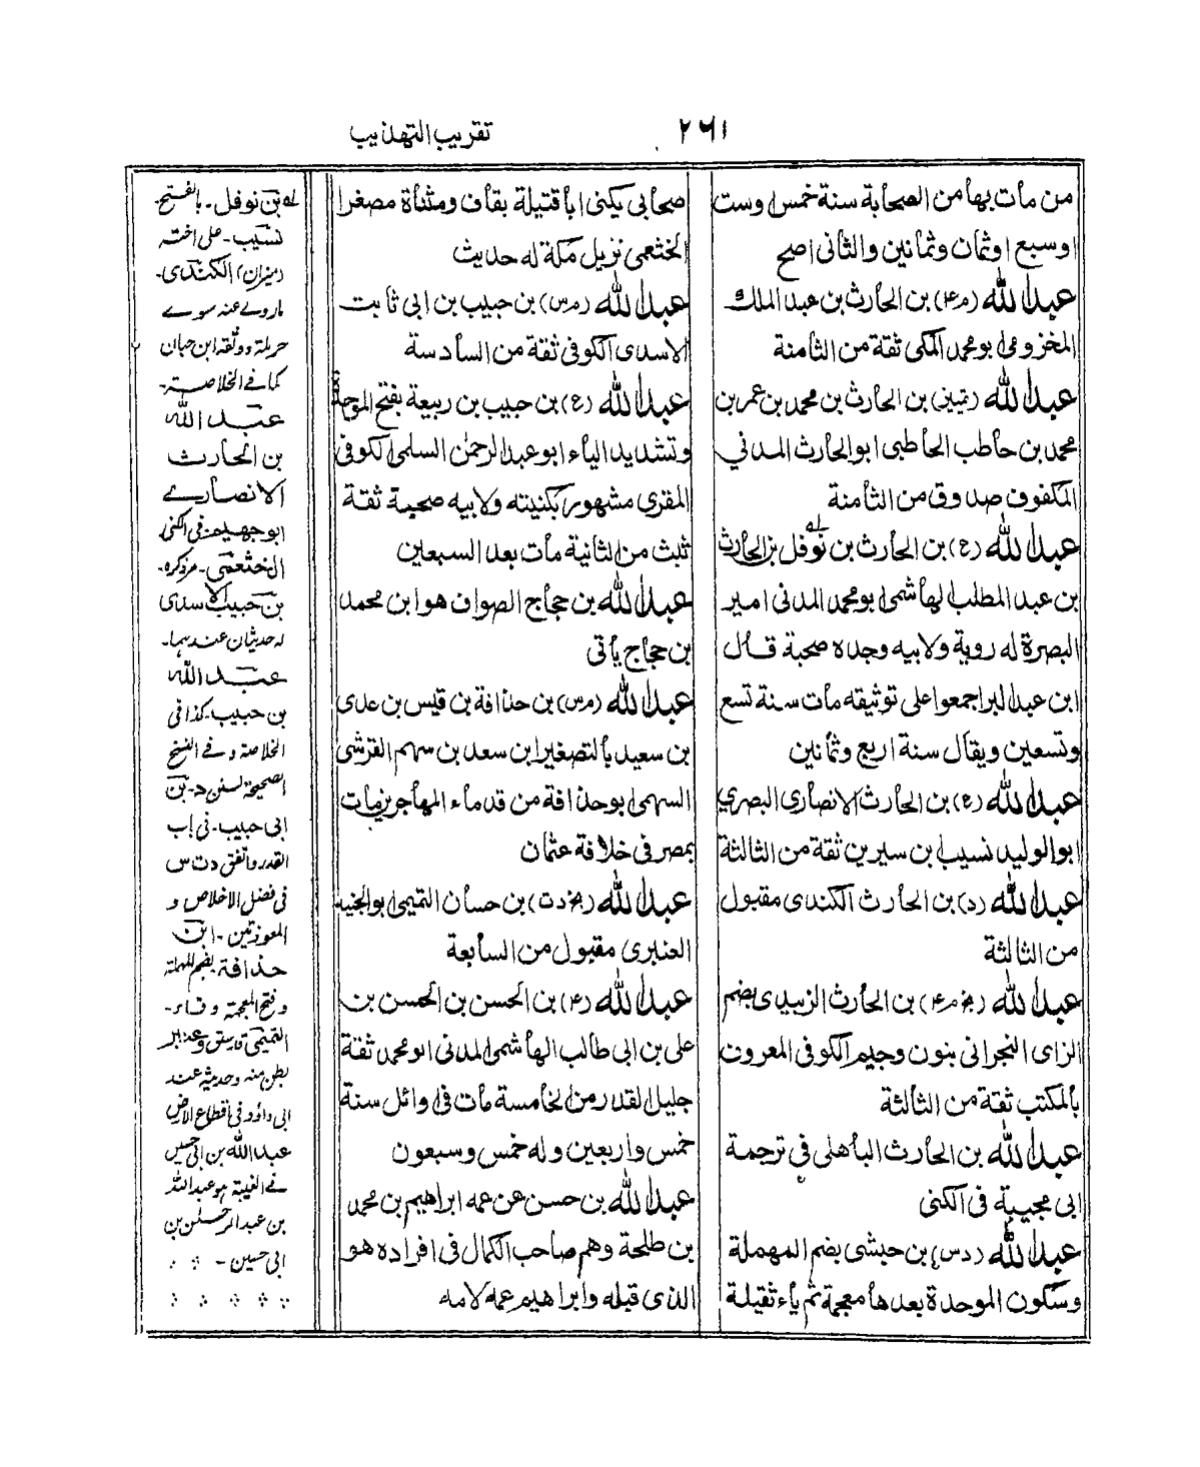 ٢٦١
تقريب التهذيب
من مات بها من الصحابة سنة خمس او ست
او سبع او ثمان وثمانين والثاني اصح
عبد الله (م ٤) بن الحارث بن عبد الملك
المخزومي ابو محمد المكي ثقة من الثامنة
عبد الله (تمييز) بن الحارث بن محمد بن عمر بن
محمد بن حاطب الحاطبي ابو الحارث المدني
المكفوف صدوق من الثامنة
عبد الله (ع) بن الحارث بن نوفل بن الحارث
بن عبد المطلب الهاشمي ابو محمد المدني امير
البصرة له روية ولابيه وجده صحبة قال
ابن عبد البر اجمعوا على توثيقه مات سنة تسع
وتسعين ويقال سنة اربع وثمانين
عبد الله (ع) بن الحارث الانصاري البصري
ابو الوليد نسيب ابن سيرين ثقة من الثالثة
عبد الله (د) بن الحارث الكندي مقبول
من الثالثة
عبد الله (بخ م ٤) بن الحارث الزبيدي بضم
الزاى النجراني بنون وجيم الكوفي المعروف
بالمكتب ثقة من الثالثة
عبد الله بن الحارث الباهلي في ترجمة
ابي مجيبة في الكنى
عبد الله (د س) بن حبشي بضم المهملة
وسكون الموحدة بعدها معجمة ثم ياء ثقيلة
صحابي يكنى ابا قتيلة بقاف ومثناة مصغرا
الخثعمي نزيل مكة له حديث
عبد الله (م س) بن حبيب بن ابي ثابت
الاسدي الكوفي ثقة من السادسة
عبد الله (ع) بن حبيب بن ربيعة بفتح الموحدة
وتشديد الياء ابو عبد الرحمن السلمي الكوفي
المقري مشهور بكنيته ولابيه صحبة ثقة
ثبت من الثانية مات بعد السبعين
عبد الله بن حجاج الصواف هو ابن محمد
بن حجاج يأتي
عبد الله (م س) بن حذافة بن قيس بن عدي
بن سعيد بالتصغير ابن سعد بن سهم القرشي
السهمي ابو حذافة من قدماء المهاجرين مات
بمصر في خلافة عثمان
عبد الله (بخ د ت) بن حسان التميمي ابو الجنيد
العنبري مقبول من السابعة
عبد الله (٤) بن الحسن بن الحسن بن
علي بن ابي طالب الهاشمي المدني ابو محمد ثقة
جليل القدر من الخامسة مات في اوائل سنة
خمس واربعين وله خمس وسبعون
عبد الله بن حسن عن عمه ابراهيم بن محمد
بن طلحة وهم صاحب الكمال في افراده هو
الذي قبله وابراهيم عمه لامه
له بن نوفل - بالفتح -
نسيب - على اخته
(ميزان) الكندي -
ما روى عنه سوى
حرملة ووثقه ابن حبان
كما في الخلاصة -
عبد الله
بن الحارث
الانصاري
ابو جهيم في الكنى
الخثعمي - مر ذكره -
بن حبيب الاسدي
له حديثان عندهما -
عبد الله
بن حبيب كذا في
الخلاصة وفي النسخ
الصحيحة لسنن د - بن
ابي حبيب - في باب
القدر واتفق د ت س
في فضل الاخلاص و
المعوذتين - ابن
حذافة بضم المهملة
وفتح المعجمة وفاء -
التميمي
بطن منه وحديثه عند
ابي داؤد في اقطاع الارض
عبد الله بن ابي حسين
في الغيبة هو عبد الله
بن عبد الرحمن بن
ابي حسين -